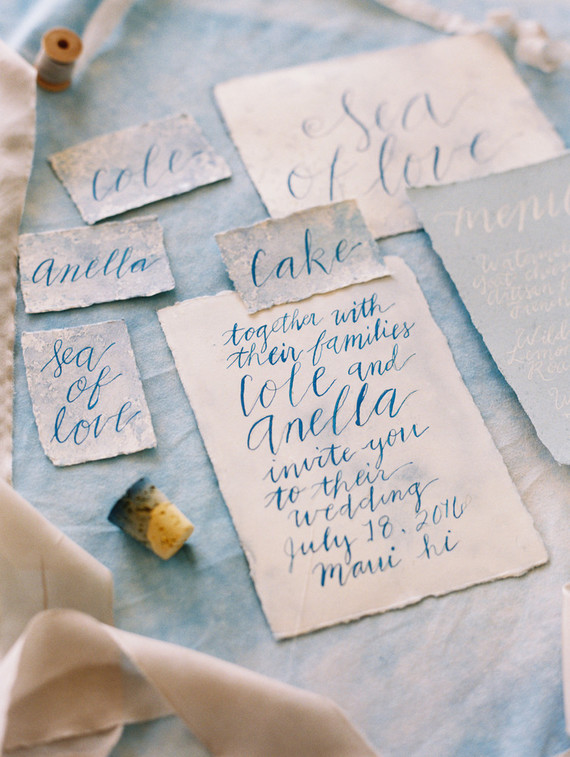 Cole
Sea
of love
Anella
Cake
menu
sea
of
love
together with
their families
Cole and
Anella
invite you
to their
wedding
July 18, 2016
Maui hi